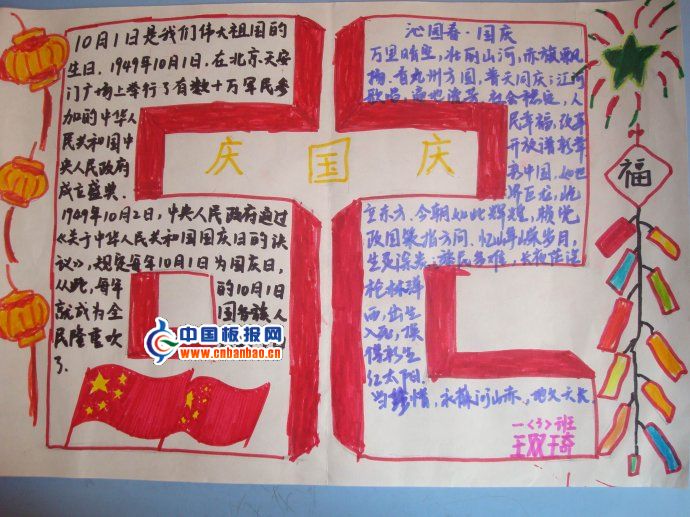 10月1日是我们伟大祖国的
生日。1949年10月1日，在北京天安
门广场上举行了有数十万军民参
加的中华人
民共和国中
央人民政府
成立盛典。
1949年10月2日，中央人民政府通过
《关于中华人民共和国国庆日的决
议》，规定每年10月1日为国庆日，
从此，每年的10月1日
就成为全国各族人
民隆重欢
了.
庆国庆
中国板报网
www.cnbanbao.cn
沁园春·国庆
万里晴空，壮丽山河，赤旗飘
扬。看九州方圆，普天同庆；江河
歌唱，遍地流芳。社会稳定，人
民幸福，改革
开放谱新章
看中国，如
界巨龙，屹
立东方。今朝如此辉煌，赖党
政国策指方向。忆
岁月，
生灵涂炭；
长夜茫茫
枪林弹
雨，出生
入死，
得新生
红太阳.
惜，永葆河山赤，地久天长
福
一〈3〉班
王双琦